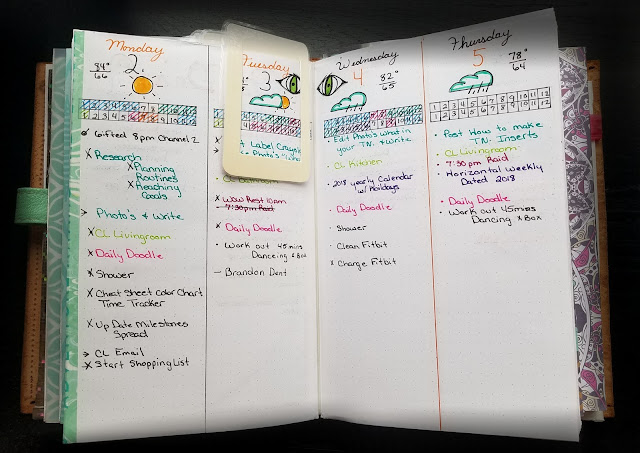 Monday
2
84°
66
1 2 3 4 5 6 7 8 9 10 11 12
1 2 3 4 5 6 7 8 9 10 11 12
Gifted 8pm Channel 2
x Research
x Planning
Routines
x Reaching
Goals
> Photo's & Write
x CL Livingroom
x Daily Doodle
x Shower
x Cheat Sheet Color Chart
Time Tracker
x Up Date Milestones
Spread
> CL Email
x Start Shopping List
Tuesday
3
Label
Photo's
x WOW Rest 10am
7:30pm Raid
x Daily Doodle
· Work out 45mins
Danceing & Box
– Brandon Dent
Wednesday
4
82°
65
Edit Photo's what in
your TN. & Write
CL Kitchen
2018 yearly Calendar
w/ Holidays
Daily Doodle
· Shower
· Clean Fitbit
x Charge Fitbit
Thursday
5
78°
64
1 2 3 4 5 6 7 8 9 10 11 12
1 2 3 4 5 6 7 8 9 10 11 12
· Post How to make
TN. Inserts
· CL Livingroom
7:30pm Raid
· Horizontal Weekly
Dated 2018
· Daily Doodle
· Work out 45mins
Dancing & Box